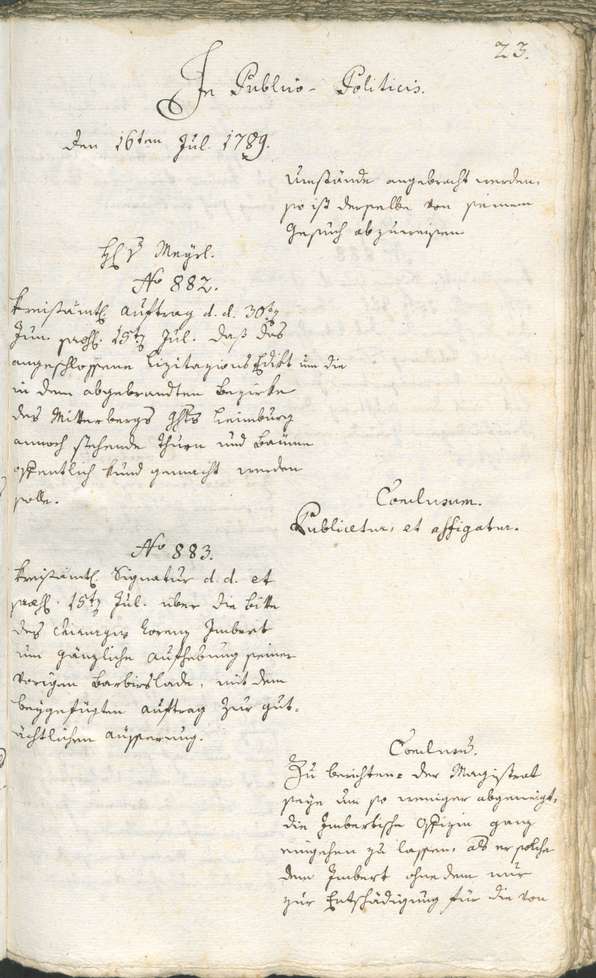 23.
In Publico-Politicis.
den 16ten Jul. 1789.
Umstände angebracht werden,
so ist derselbe von seinem
Gesuch abzuweisen
Meyrl.
No 882.
Kreisämtl. Auftrag d. d. 30ten
Jun. praes. 15ten Jul. daß das
angeschlossene Lizitazions Edikt um die
in dem abgebrandten Bezirke
des Mitterbergs Ghts
annoch stehende Thürn und Bäume
offentlich kund gemacht werden
solle.
Conclusum.
Publicetur, et affigatur.
No 883.
Kreisämtl. Signatur d. d. et
praes. 15ten Jul. über die Bitte
des Chirurgus Lorenz Imbert
um gänzliche Aufhebung seiner
vorigen Barbierslade, mit dem
beygefügten Auftrag zur gut-
ächtlichen Äusserung.
Conclusum.
Zu berichten: der Magistrat
seye um so weniger abgeneigt,
die Imbertische Offizin ganz
eingehen zu lassen, als er solche
dem Imbert ohnedem nur
zur Entschädigung für die von